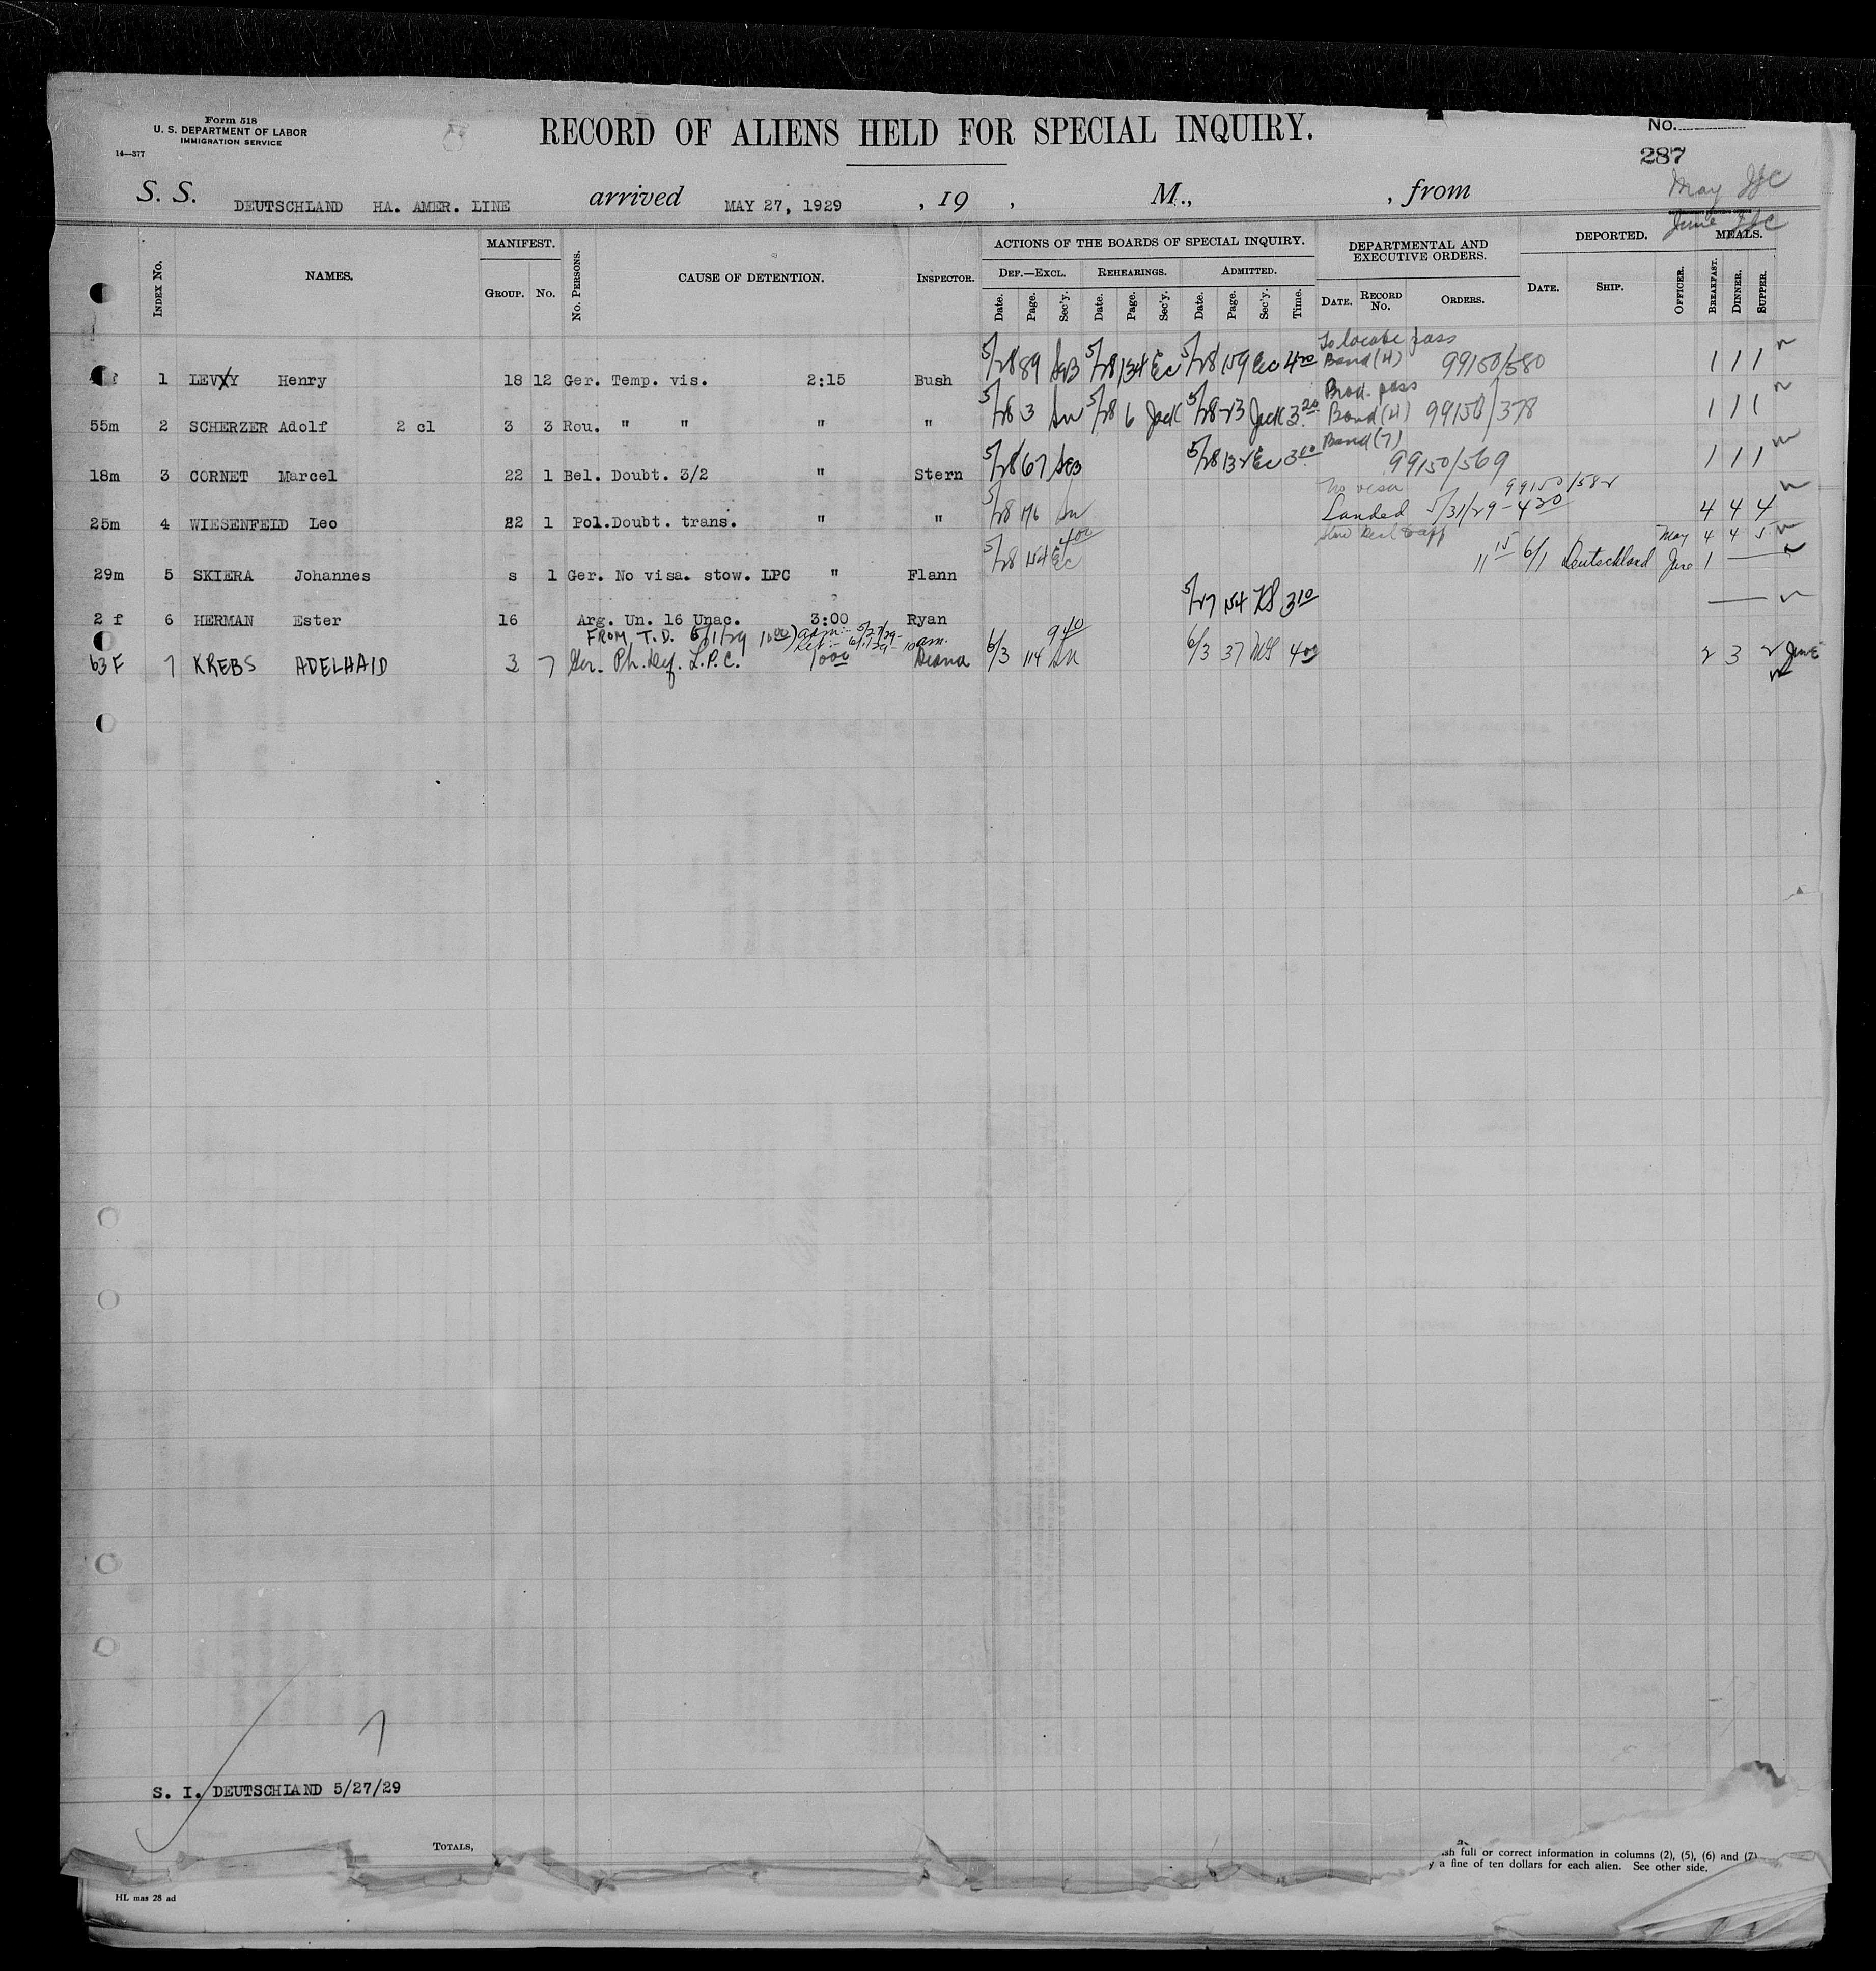 Form 518
U. S. DEPARTMENT OF LABOR
IMMIGRATION SERVICE
14—377
RECORD OF ALIENS HELD FOR SPECIAL INQUIRY.
No.
287
S. S. DEUTSCHLAND HA. AMER. LINE arrived MAY 27, 1929 , 19 , M., , from
May
June
INDEX No. NAMES. MANIFEST. No. PERSONS. CAUSE OF DETENTION. INSPECTOR. ACTIONS OF THE BOARDS OF SPECIAL INQUIRY. DEPARTMENTAL AND EXECUTIVE ORDERS. DEPORTED. OFFICER. MEALS.
GROUP. No. DEF.—EXCL. REHEARINGS. ADMITTED. DATE. RECORD No. ORDERS. DATE. SHIP. BREAKFAST. DINNER. SUPPER.
Date. Page. Sec'y. Date. Page. Sec'y. Date. Page. Sec'y. Time.
To locate pass
1 LEVY Henry 18 12 Ger. Temp. vis. 2:15 Bush 5/28 89 5/28 134 Ec 5/28 159 Ec 4 20 Bond (4) 99150/580 1 1 1
pass
55m 2 SCHERZER Adolf 2 cl 3 3 Rou. " " " " 5/28 3 5/28 6 Jack 5/28 23 Jack 3 20 Bond (4) 99150/378 1 1 1
Bond (7)
18m 3 CORNET Marcel 22 1 Bel. Doubt. 3/2 " Stern 5/28 67 5/28 132 Ec 3 00 99150/569 1 1 1
No visa 99150/582
25m 4 WIESENFELD Leo 22 1 Pol. Doubt. trans. " " 5/28 176 Landed 5/31/29 - 4 20 4 4 4
May 4 4 5
29m 5 SKIERA Johannes s 1 Ger. No visa. stow. LPC " Flann 5/28 154 Ec 4 00 11 15 6/1 Deutschland June 1
2 f 6 HERMAN Ester 16 Arg. Un. 16 Unac. 3:00 Ryan 5/27 154 3 10
FROM T.D. 6/1/29 10 00) adm :- 5/27/29- Ret :- 6/1/29- 10 am.
63 F 7 KREBS ADELHAID 3 7 Ger. Ph. Def. L.P.C. 10 00 6/3 114 9 40 6/3 37 4 00 2 3 2 June
7
S. I. DEUTSCHLAND 5/27/29
TOTALS,
sh full or correct information in columns (2), (5), (6) and (7)
y a fine of ten dollars for each alien. See other side.
HL mas 28 ad